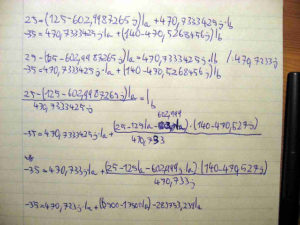 25=(125-602,9987265j)Ia+470,7333425j·Ib
-35=470,7333425j·Ia+(140-470,5268456j)Ib
25-(125-602,9987265j)Ia=470,7333425j·Ib /:470,7333j
-35=470,7333425j·Ia+(140-470,5268456j)Ib
25-(125-602,9987265j)Ia
=Ib
470,7333425j
602,999
-35=470,7333425j·Ia+ (25-125Ia- jIa)·(140-470,527j)
470,733
-35=470,733jIa+ (25-125Ia-602,999jIa)·(140-470,527j)
470,733j